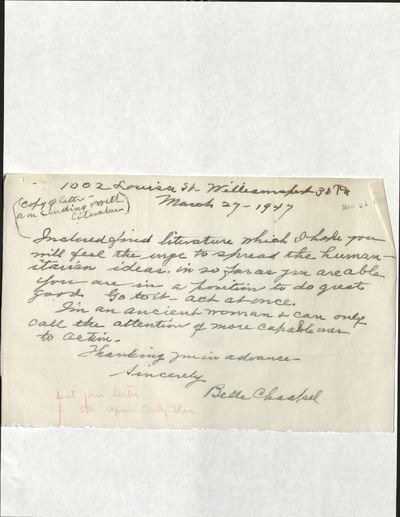 1002 Louisa St. Williamsport 30 Pa
March 27 - 1947
(Copy of letter
am sending with
literature)
Inclosed find literature which I hope you
will feel the urge to spread the human-
itarian ideas, in so far as you are able
You are in a position to do great
good. Go to it - act at once.
I'm an ancient woman & can only
call the attention of more capable ones
to action.
Thanking you in advance -
Sincerely
Bella Chaapel
sent form letter
copies only then